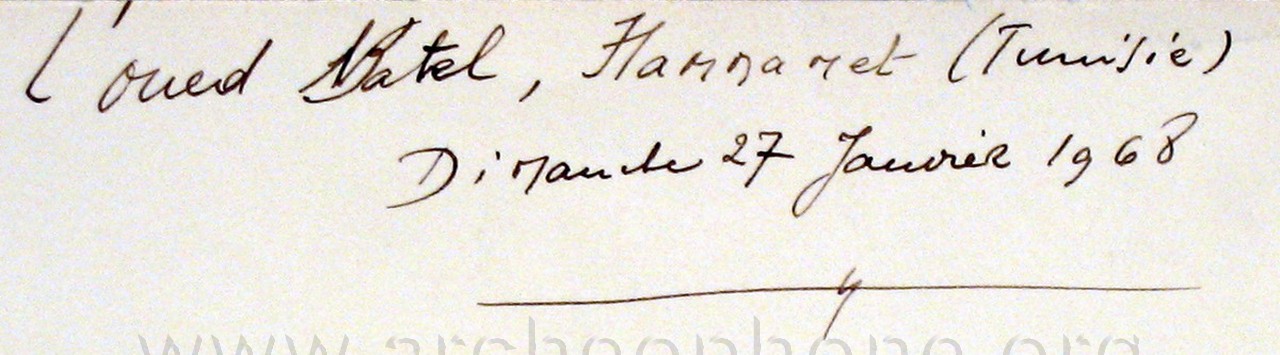 l'oued Batel, Hammamet (Tunisie)
Dimanche 27 Janvier 1968
www.archeophone.org